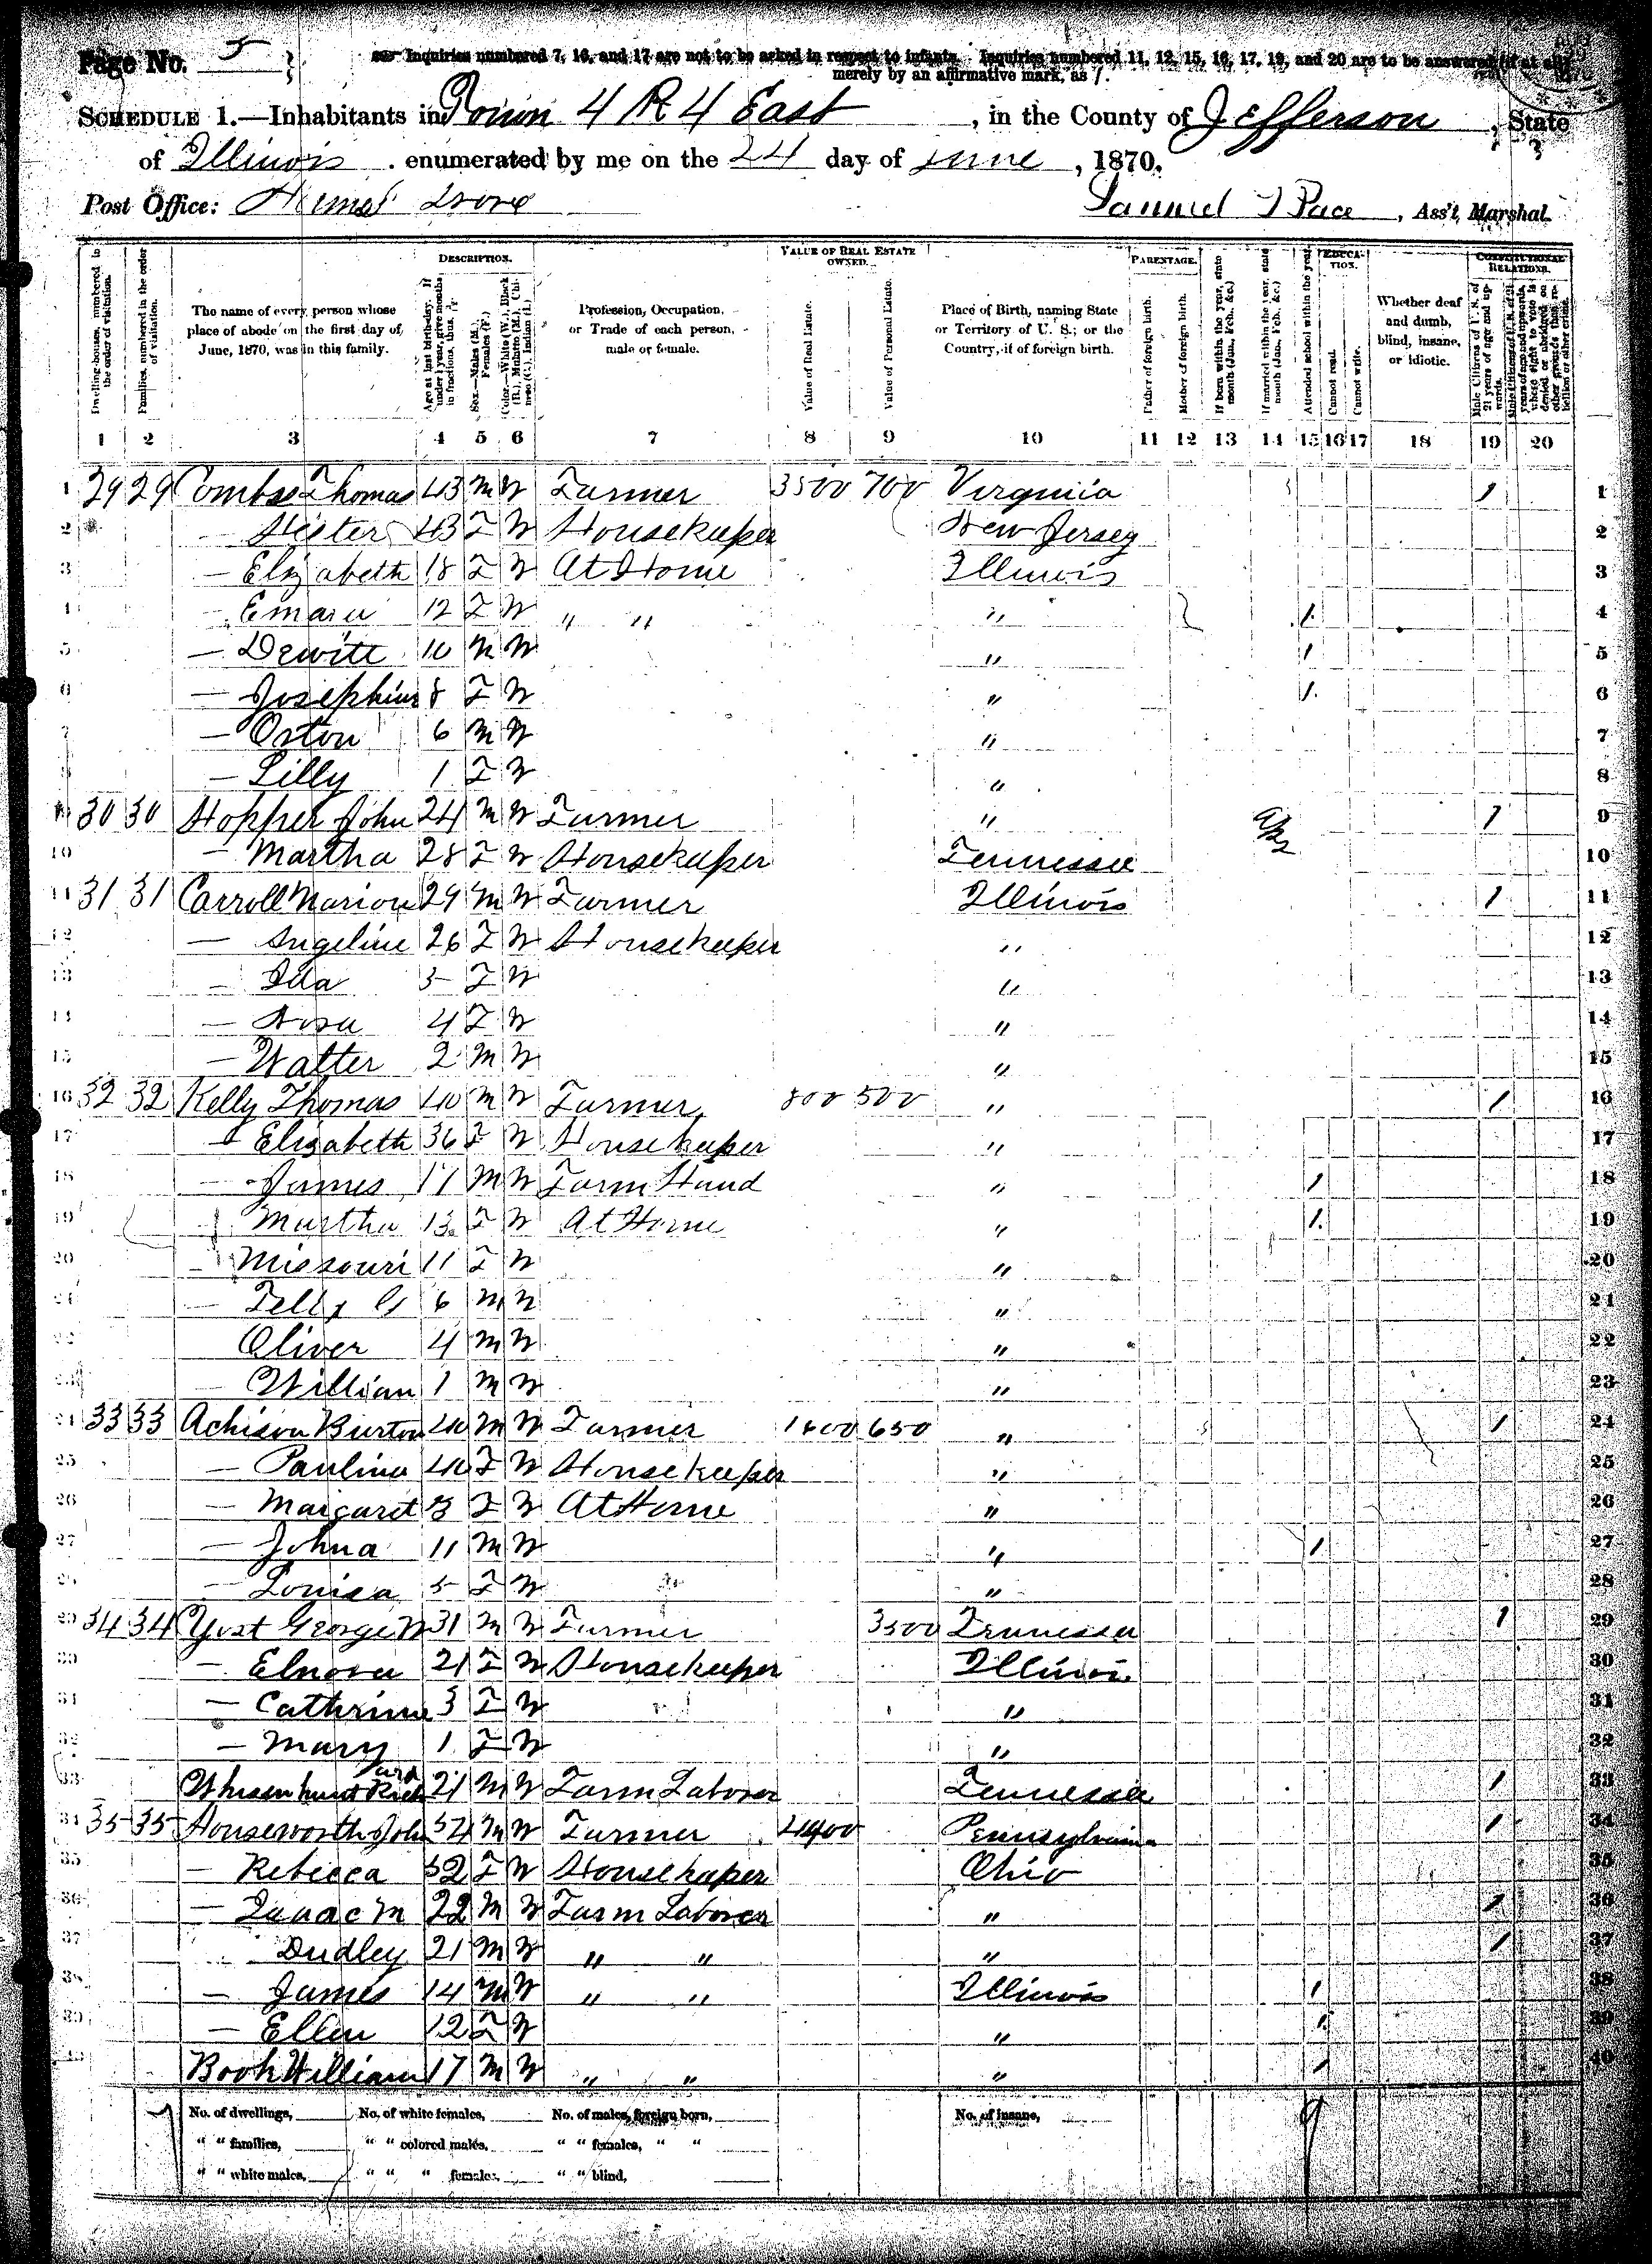 Page No. 5
Inquiries numbered 7, 16, and 17 are not to be asked in respect to infants. Inquiries numbered 11, 12, 15, 16, 17, 19, and 20 are to be answered (if at all)
merely by an affirmative mark, as /.
SCHEDULE 1.—Inhabitants in Town 4 R 4 East, in the County of Jefferson, State
of Illinois. enumerated by me on the 24 day of June, 1870.
Post Office: Grove Samuel T Pace, Ass't Marshal.
DESCRIPTION. VALUE OF REAL ESTATE OWNED. PARENTAGE. EDUCATION. CONSTITUTIONAL RELATIONS.
Dwelling-houses, numbered in the order of visitation. Families, numbered in the order of visitation. The name of every person whose place of abode on the first day of June, 1870, was in this family. Age at last birth-day. If under 1 year, give months in fractions, thus, Sex.—Males (M.), Females (F.) Color.—White (W.), Black (B.), Mulatto (M.), Chinese (C.), Indian (I.) Profession, Occupation, or Trade of each person, male or female. Value of Real Estate. Value of Personal Estate. Place of Birth, naming State or Territory of U. S.; or the Country, if of foreign birth. Father of foreign birth. Mother of foreign birth. If born within the year, state month (Jan., Feb., &c.) If married within the year, state month (Jan., Feb., &c.) Attended school within the year. Cannot read. Cannot write. Whether deaf and dumb, blind, insane, or idiotic. Male Citizens of U. S. of 21 years of age and upwards.
1 2 3 4 5 6 7 8 9 10 11 12 13 14 15 16 17 18 19 20
1 29 29 Combs Thomas 43 M W Farmer 3500 700 Virginia / 1
2 — Hester 43 F W Housekeeper New Jersey 2
3 — Elizabeth 18 F W At Home Illinois 3
4 — 12 F W " " " / 4
5 — Dewitt 10 M W " / 5
6 — Josephine 8 F W " / 6
7 — Orton 6 M W " 7
8 — Lilly 1 F W " 8
9 30 30 Hopper John 24 M W Farmer " / 9
10 — Martha 28 F W Housekeeper Tennessee 10
11 31 31 Carroll Marion 29 M W Farmer Illinois / 11
12 — Angeline 26 F W Housekeeper " 12
13 — Ida 5 F W " 13
14 — 4 F W " 14
15 — Walter 2 M W " 15
16 32 32 Kelly Thomas 40 M W Farmer 800 500 " / 16
17 — Elizabeth 36 F W Housekeeper " 17
18 — James 17 M W Farm Hand " / 18
19 Martha 13 F W At Home " / 19
20 — Missouri 11 F W " 20
21 — 6 M W " 21
22 Oliver 4 M W " 22
23 — William 1 M W " 23
24 33 33 Achison Burton 40 M W Farmer 1600 650 " / 24
25 — Paulina 40 F W Housekeeper " 25
26 — Margaret F W At Home " 26
27 — John a 11 M W " / 27
28 — Louisa 5 F W " 28
29 34 34 Yost George W 31 M W Farmer 3500 Tennessee / 29
30 — Elnora 21 F W Housekeeper Illinois 30
31 — Cathrine 3 F W " 31
32 — Mary 1 F W " 32
33 21 M W Farm Laborer Tennessee / 33
34 35 35 Houseworth John 54 M W Farmer 4400 Pennsylvania / 34
35 — Rebecca 52 F W Housekeeper Ohio 35
36 — Isaac M 22 M W Farm Laborer " / 36
37 Dudley 21 M W " " " / 37
38 — James 14 M W " " Illinois / 38
39 — Ellen 12 F W " / 39
40 Book William 17 M W " " " / 40
7 No. of dwellings, No. of white females, No. of males, foreign born, No. of insane, 9
" " families, " " colored males, " " females, " "
" " white males, " " " females, " " blind,